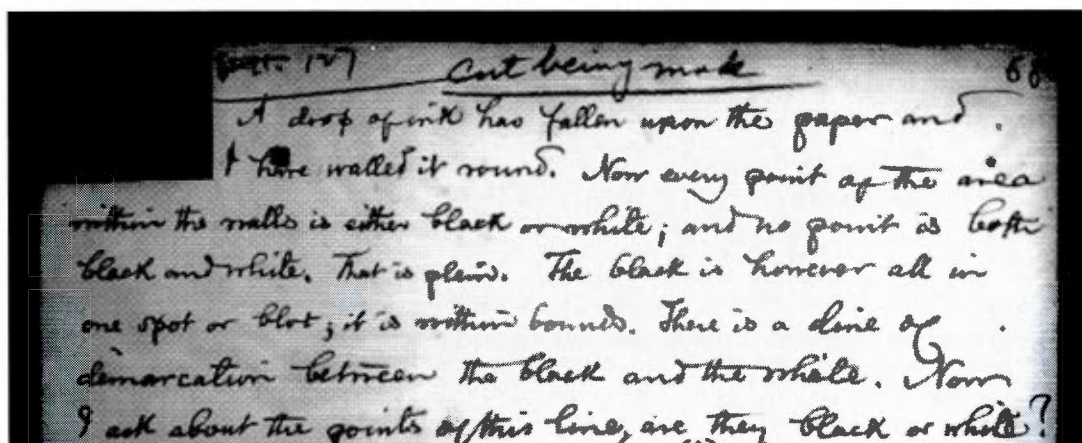 127 cut being made
A drop of ink has fallen upon the paper and
I have walled it round. Now every point of the area
within the walls is either black or white; and no point is both
black and white. That is plain. The black is however all in
one spot or blot; it is within bounds. There is a line of
demarcation between the black and the white. Now
I ask about the points of this line, are they black or white?